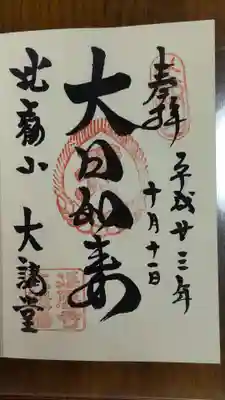 奉拝
平成廿三年
十月十一日
大日如来
比叡山
大講堂